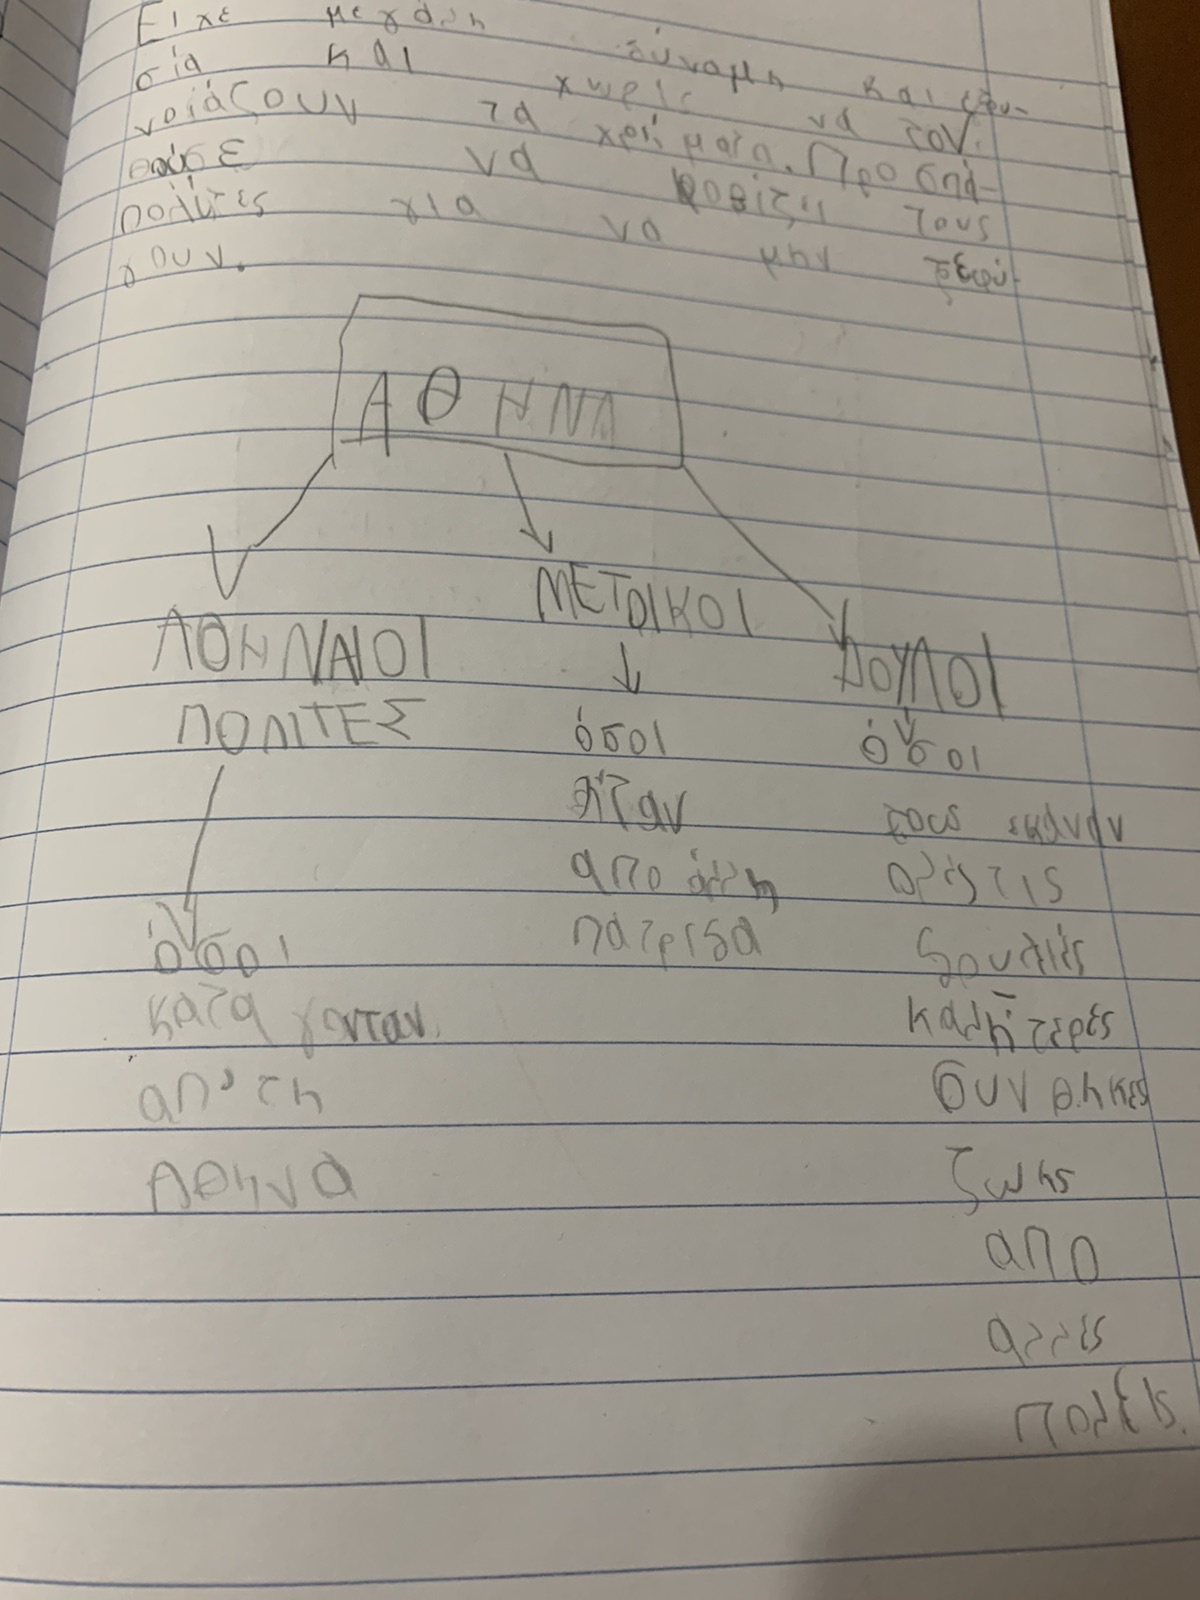 Είχε μεγάλη δύναμη και εξου-
σία και χωρίς να τον.
νοιάζουν τα χρήματα. Προσπά-
θούσε να φοβίζει τους
πολίτες για να μην ξεφύ-
γουν.
ΑΘΗΝΑ
ΑΘΗΝΑΙΟΙ
ΠΟΛΙΤΕΣ
όσοι
καταγονταν.
απ' τη
Αθηνα
ΜΕΤΟΙΚΟΙ
όσοι
ήταν
απο άλλη
πατριδα
ΔΟΥΛΟΙ
όσοι
τους εκαναν
ολές τις
δουλιές
καλήτερες
συνθηκες
ζωης
απο
αλλες
πολεις.